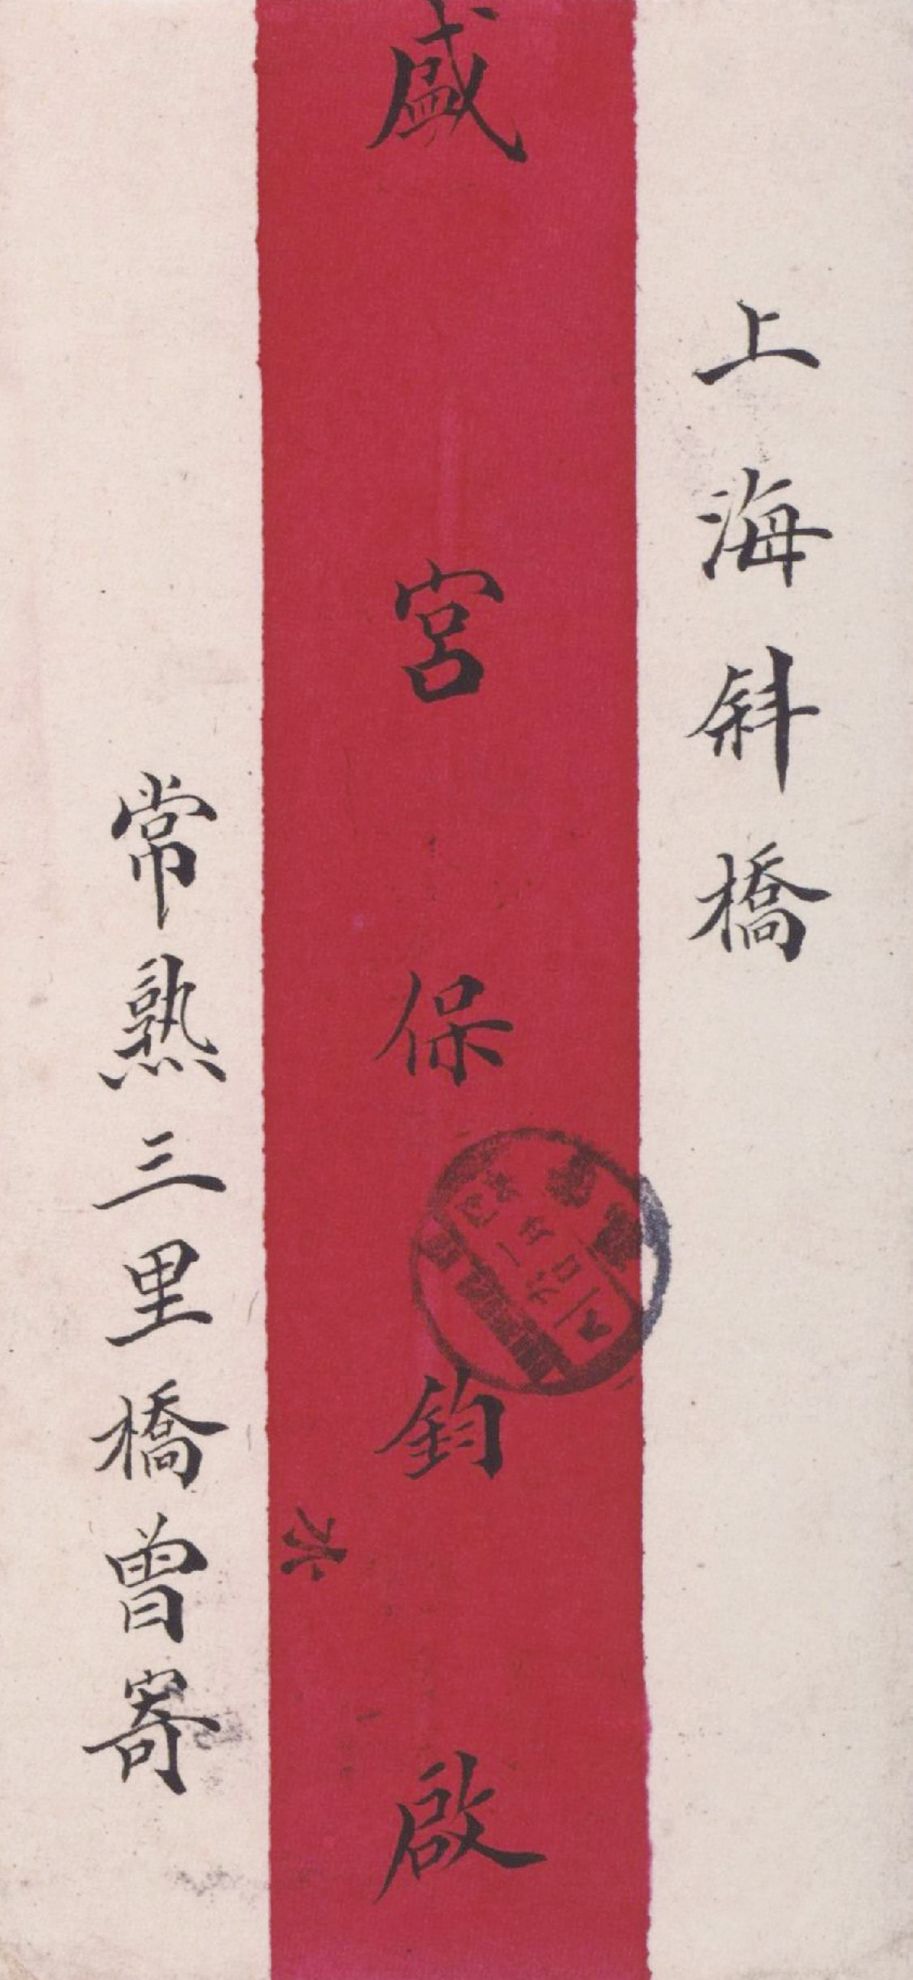 上海斜橋
盛宮保鈞啟
常熟三里橋曾寄